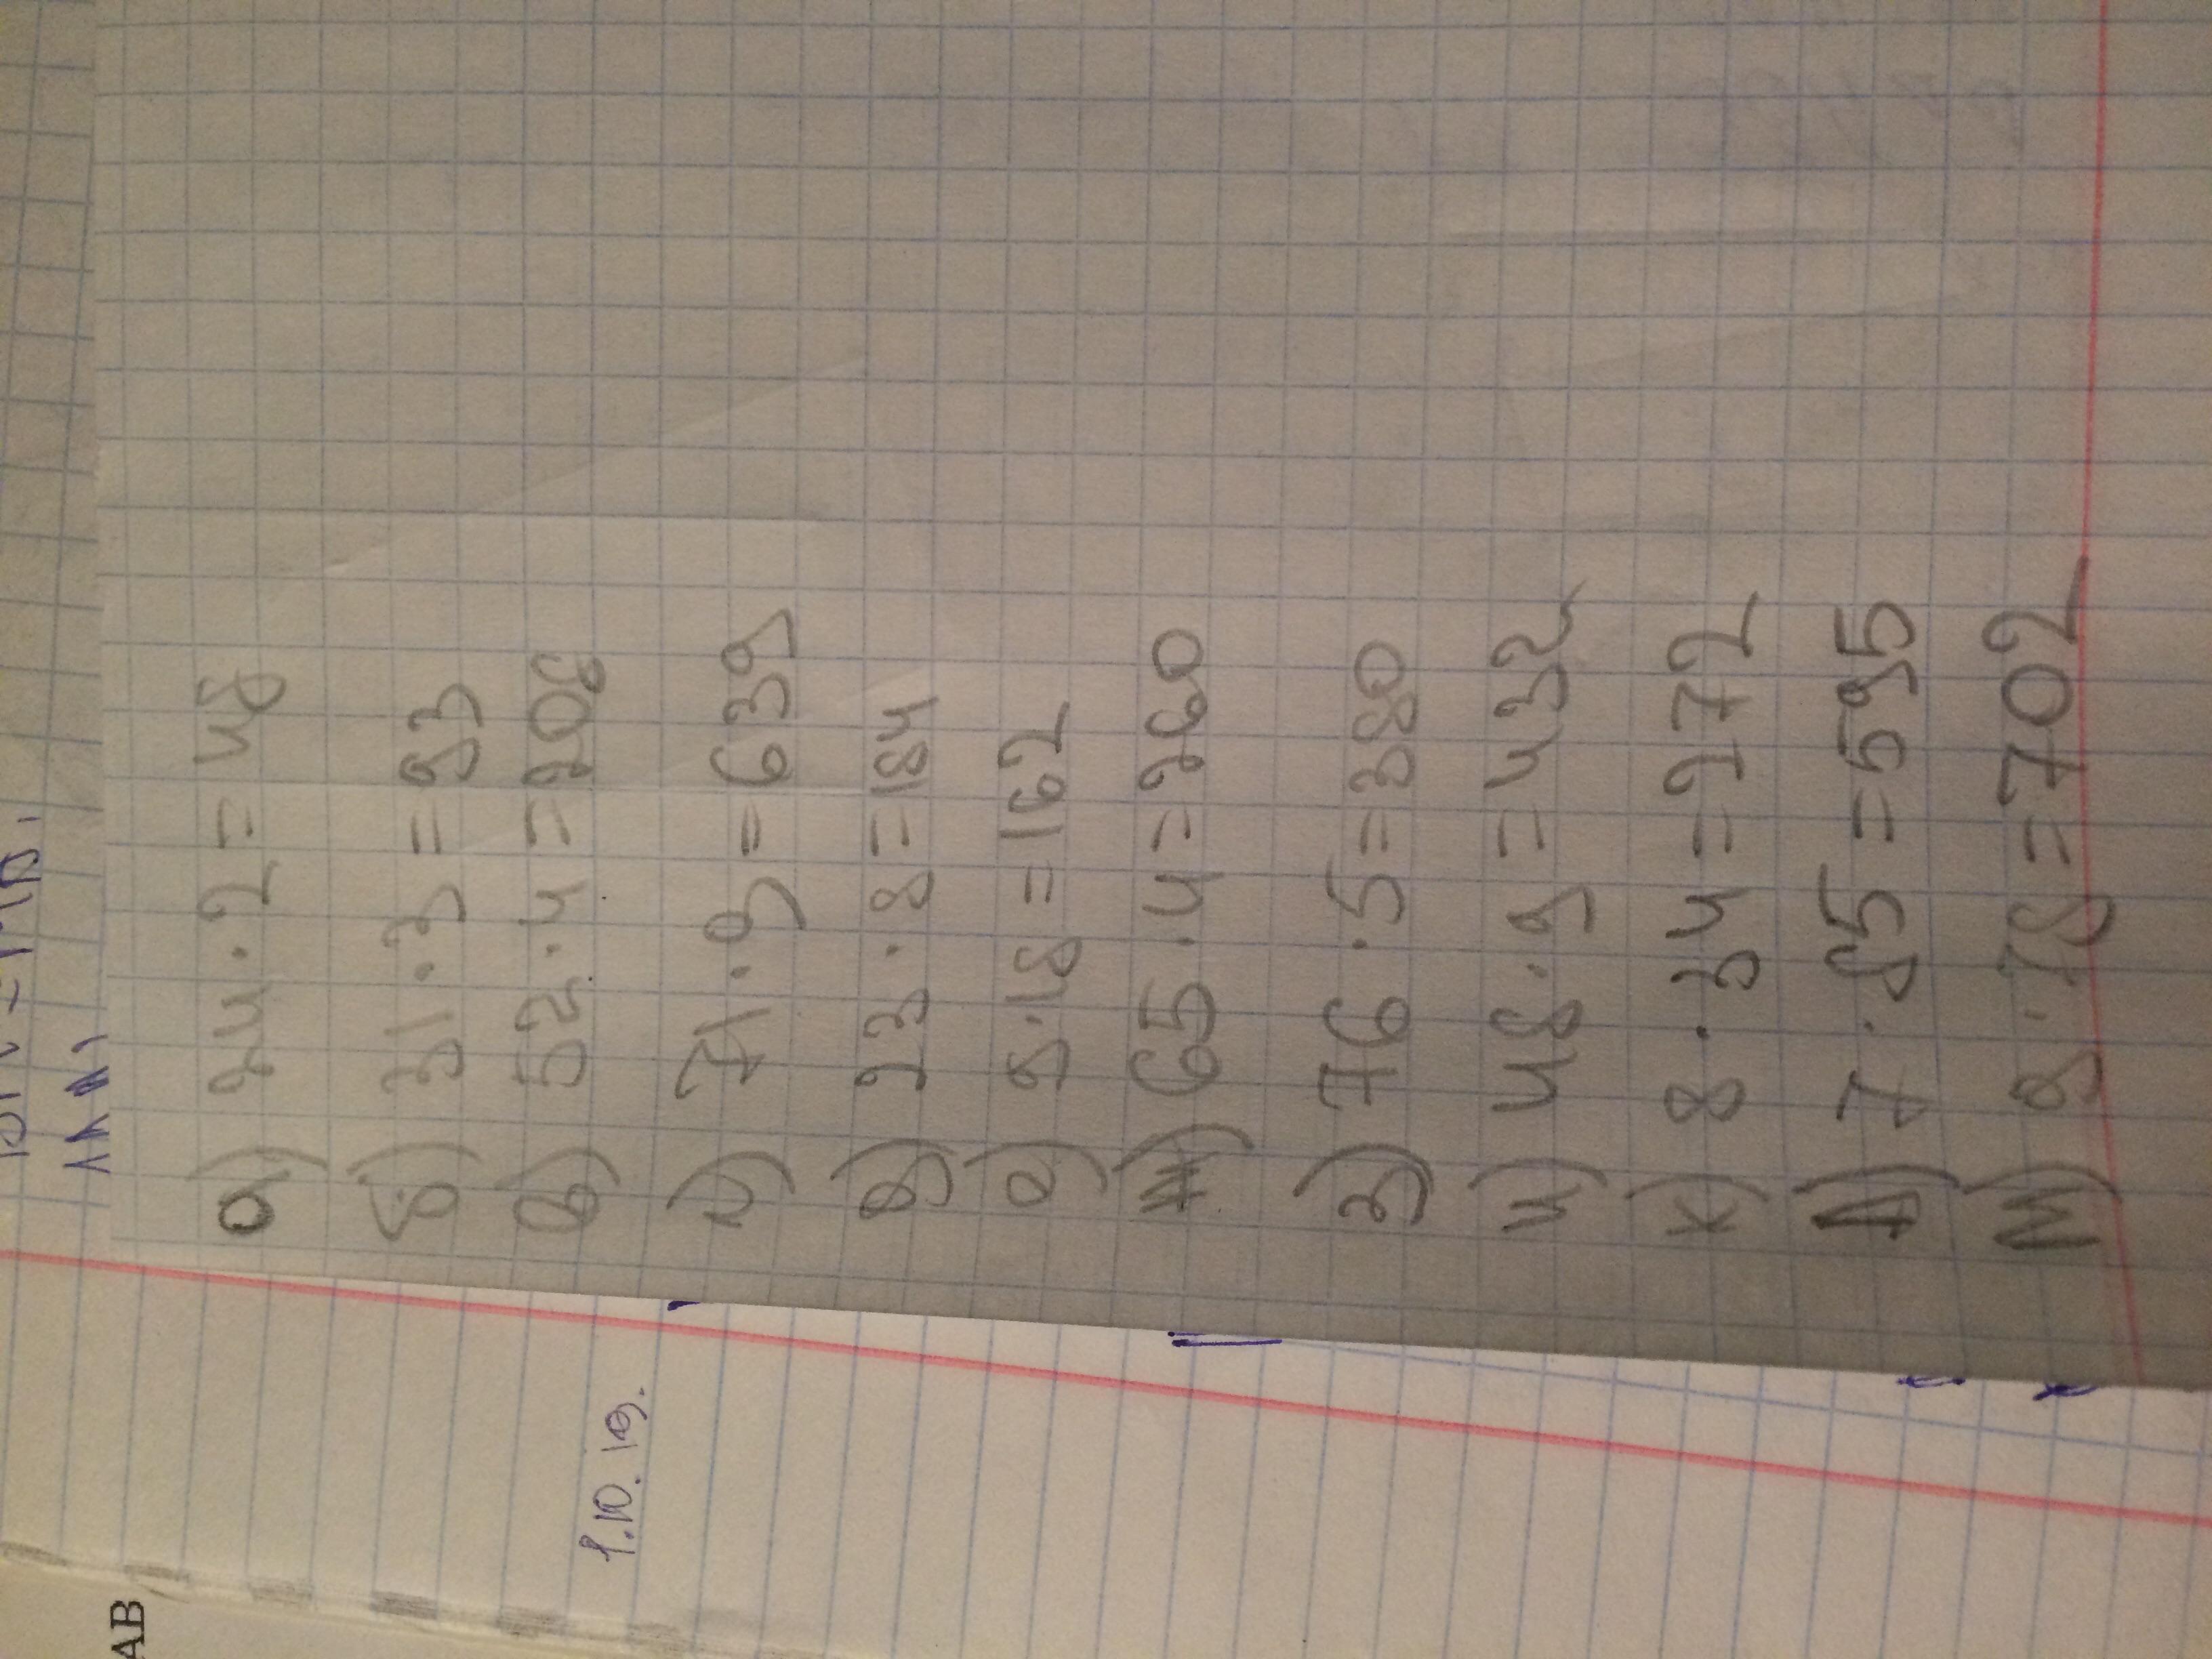 а) 24·2=48
б) 31·3=93
в) 52·4=208
г) 71·9=639
д) 23·8=184
е) 9·18=162
ж) 65·4=260
з) 76·5=380
и) 48·9=432
к) 8·34=272
л) 7·85=595
м) 9·78=702
1.10.19.
АВ